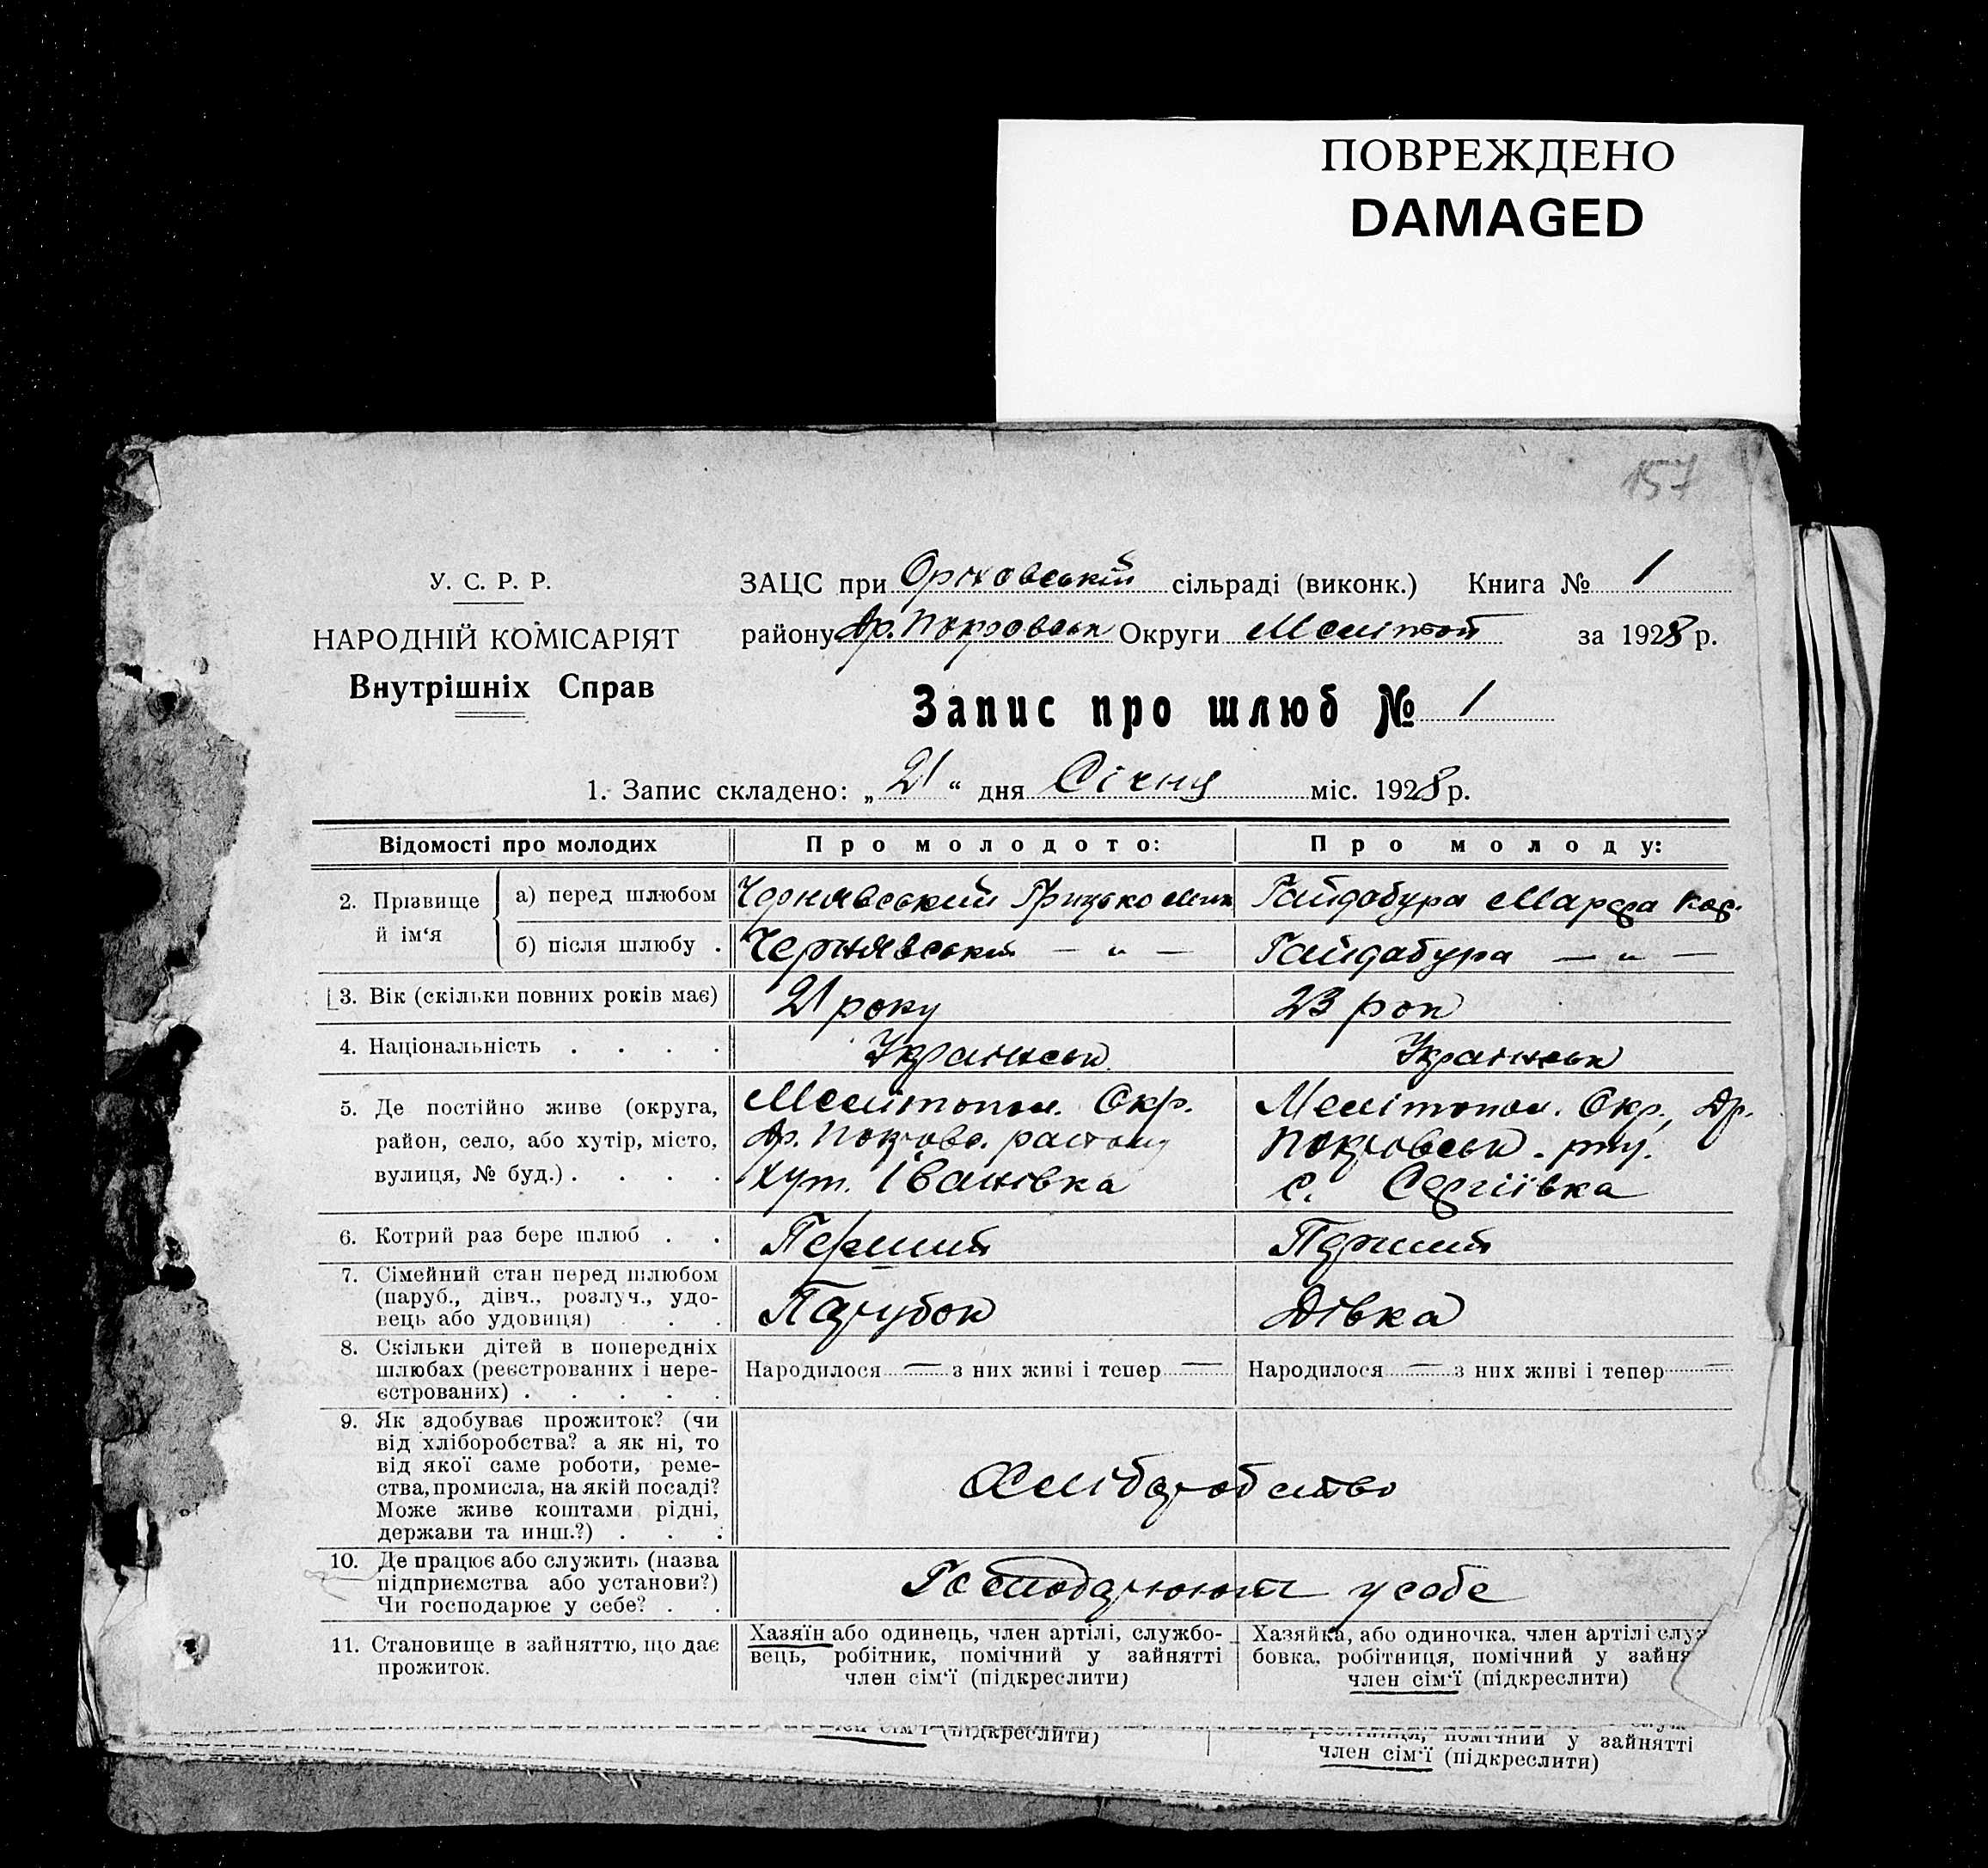 ПОВРЕЖДЕНО
DAMAGED
157
У. С. Р. Р.
НАРОДНІЙ КОМІСАРІЯТ
Внутрішніх Справ
ЗАЦС при Оріховській сільраді (виконк.) Книга № 1
району Др. Покровськ Округи Меліт за 1928 р.
Запис про шлюб № 1
1. Запис складено: „21“ дня Січня міс. 1928 р.
Відомості про молодих Про молодого: Про молоду:
2. Прізвище й ім‘я
а) перед шлюбом Чернявський Грицько Мик Гайдабура Марфа
б) після шлюбу . Чернявськй — „ — Гайдабура — „ —
3. Вік (скільки повних років має) 21 року 23 рок
4. Національність . . . . Українськ Українськ
5. Де постійно живе (округа,
район, село, або хутір, місто,
вулиця, № буд.) . . . .
Мелітопол. Окр.
Др. Покровс. району
хут. Іванівка
Мелітопол. Окр., Др.
Покровськ. рну.
с. Сергіївка
6. Котрий раз бере шлюб . . Перший Перший
7. Сімейний стан перед шлюбом
(паруб., дівч., розлуч., удо-
вець або удовиця) . . .
Парубок Дівка
8. Скільки дітей в попередніх
шлюбах (реєстрованих і нере-
єстрованих) . . . . .
Народилося — з них живі і тепер — Народилося — з них живі і тепер —
9. Як здобуває прожиток? (чи
від хліборобства? а як ні, то
від якої саме роботи, реме-
ства, промисла, на якій посаді?
Може живе коштами рідні,
держави та инш.?) . . .
Хліборобство
10. Де працює або служить (назва
підприємства або установи?)
Чи господарює у себе? . .
Господарюють у себе
11. Становище в зайняттю, що дає
прожиток.
Хазяїн або одинець, член артілі, службо-
вець, робітник, помічний у зайнятті
член сім‘ї (підкреслити)
Хазяйка, або одиночка, член артілі служ
бовка, робітниця, помічний у зайня
член сім‘ї (підкреслити)
сім‘ї (підкреслити)
робітниця, помічний у зайнятті
член сім‘ї (підкреслити)